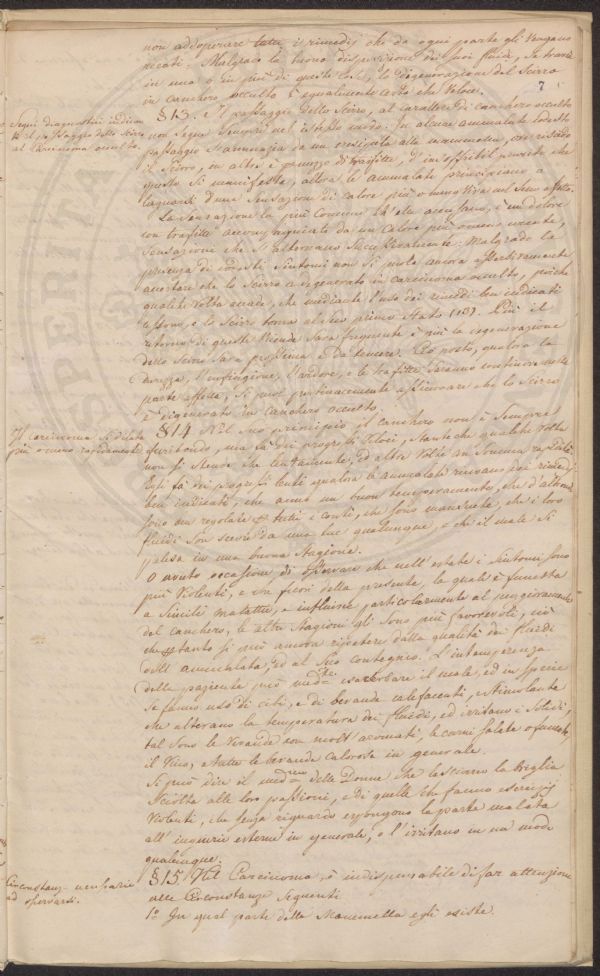 non addoperare tutti i rimedij che da ogni parte gli vengano
recati. Malgrado la buona disposizione dei suoi fluidi, se trovasi
in una o in più di questi casi, la degenerazione del Scirro
in canchero occulto è egualmente certa che veloce.
7
Segni diagnostici indican
ti il passaggio dello Scirro
al Carcinoma occulto.
§ 13. Il passaggio dello Scirro, al carattere di canchero occulto
non segue sempre nel istesso modo. In alcune ammalate codesto
passaggio si annunzia da un eresipela alla mammella, con
il Scirro, in altre è prurito che
questo si manifesta, allora le ammalate principiano a
lagnarsi d'una sensazione di calore più o meno viva nel Seno affetto.
La sensazione la più comune ch'elle accusano, è un dolore
con trafitte accompagnato da un calore più o meno urente,
sensazioni che s'alternano successivamente. Malgrado la
presenza di codesti sintomi non si puole ancora assertivamente
accertare che lo Scirro a degenerato in carcinoma occulto, poiche
qualche volta accade, che mediante l'uso dei rimedi ben indicati
cessono, e lo Scirro torna al suo primo stato (10). Più il
ritorno di queste vicende sarà frequente è più la degenerazione
dello Scirro sarà prossima e da temere. Ciò posto, qualora la
durezza, l'ardore, e le trafitte saranno continove nella
parte affetta, si può pertinacemente assicurare che lo Scirro
è degenerato in canchero occulto.
Il carcinoma si dilata
più o meno rapidamente
§ 14. Nel suo principio il canchero non è sempre
furibondo, ma fà dei progressi veloci, stante che qualche volta
non si stende che lentamente, ed altre volte con somma rapidità.
Esso fà dei progressi lenti qualora le ammalate ricevano poi rimedij
ben indicati, che anno un buon temperamento, che d'altronde
sono ben regolate tutti i conti, che sono mansuete, che i loro
fluidi son scevri da una lue qualunque, e che il male si
palesa in una buona stagione.
O avuto occasione di osservare che nell'estate i sintomi sono
più violenti, e con fieri della presente, la quale è funesta
a simili malattie, e influisce particolarmente al peggioramento
del canchero, le altre stagioni gli sono più favorevoli, ciò
che tanto si può ancora ripetere dalla qualità dei fluidi
dell'ammalata, ed al suo contegno. L'intemperanza
della paziente può med.te esacerbare il male, ed in specie
se fanno uso di cibi, e di bevande calefacenti, e stimolante
che alterano la temperatura dei fluidi, ed irritano i solidi,
tal sono le vivande con molti aromati, le carni salate o fumate,
il vino, e tutte le bevande calorose in generale.
Si può dire il med.mo delle Donne che lasciano la briglia
sciolta alle loro passioni, e di quelle che fanno esercizij
violenti, che senza riguardo espongono la parte malata
all'ingiurie esterne in generale, o l'irritano in un modo
qualunque.
Circonstanze necessarie
ad osservarsi.
§ 15. Nel Carcinoma, è indispensabile di far attenzione
alle Circonstanze Seguenti
1.o In qual parte della Mammella egli esiste.